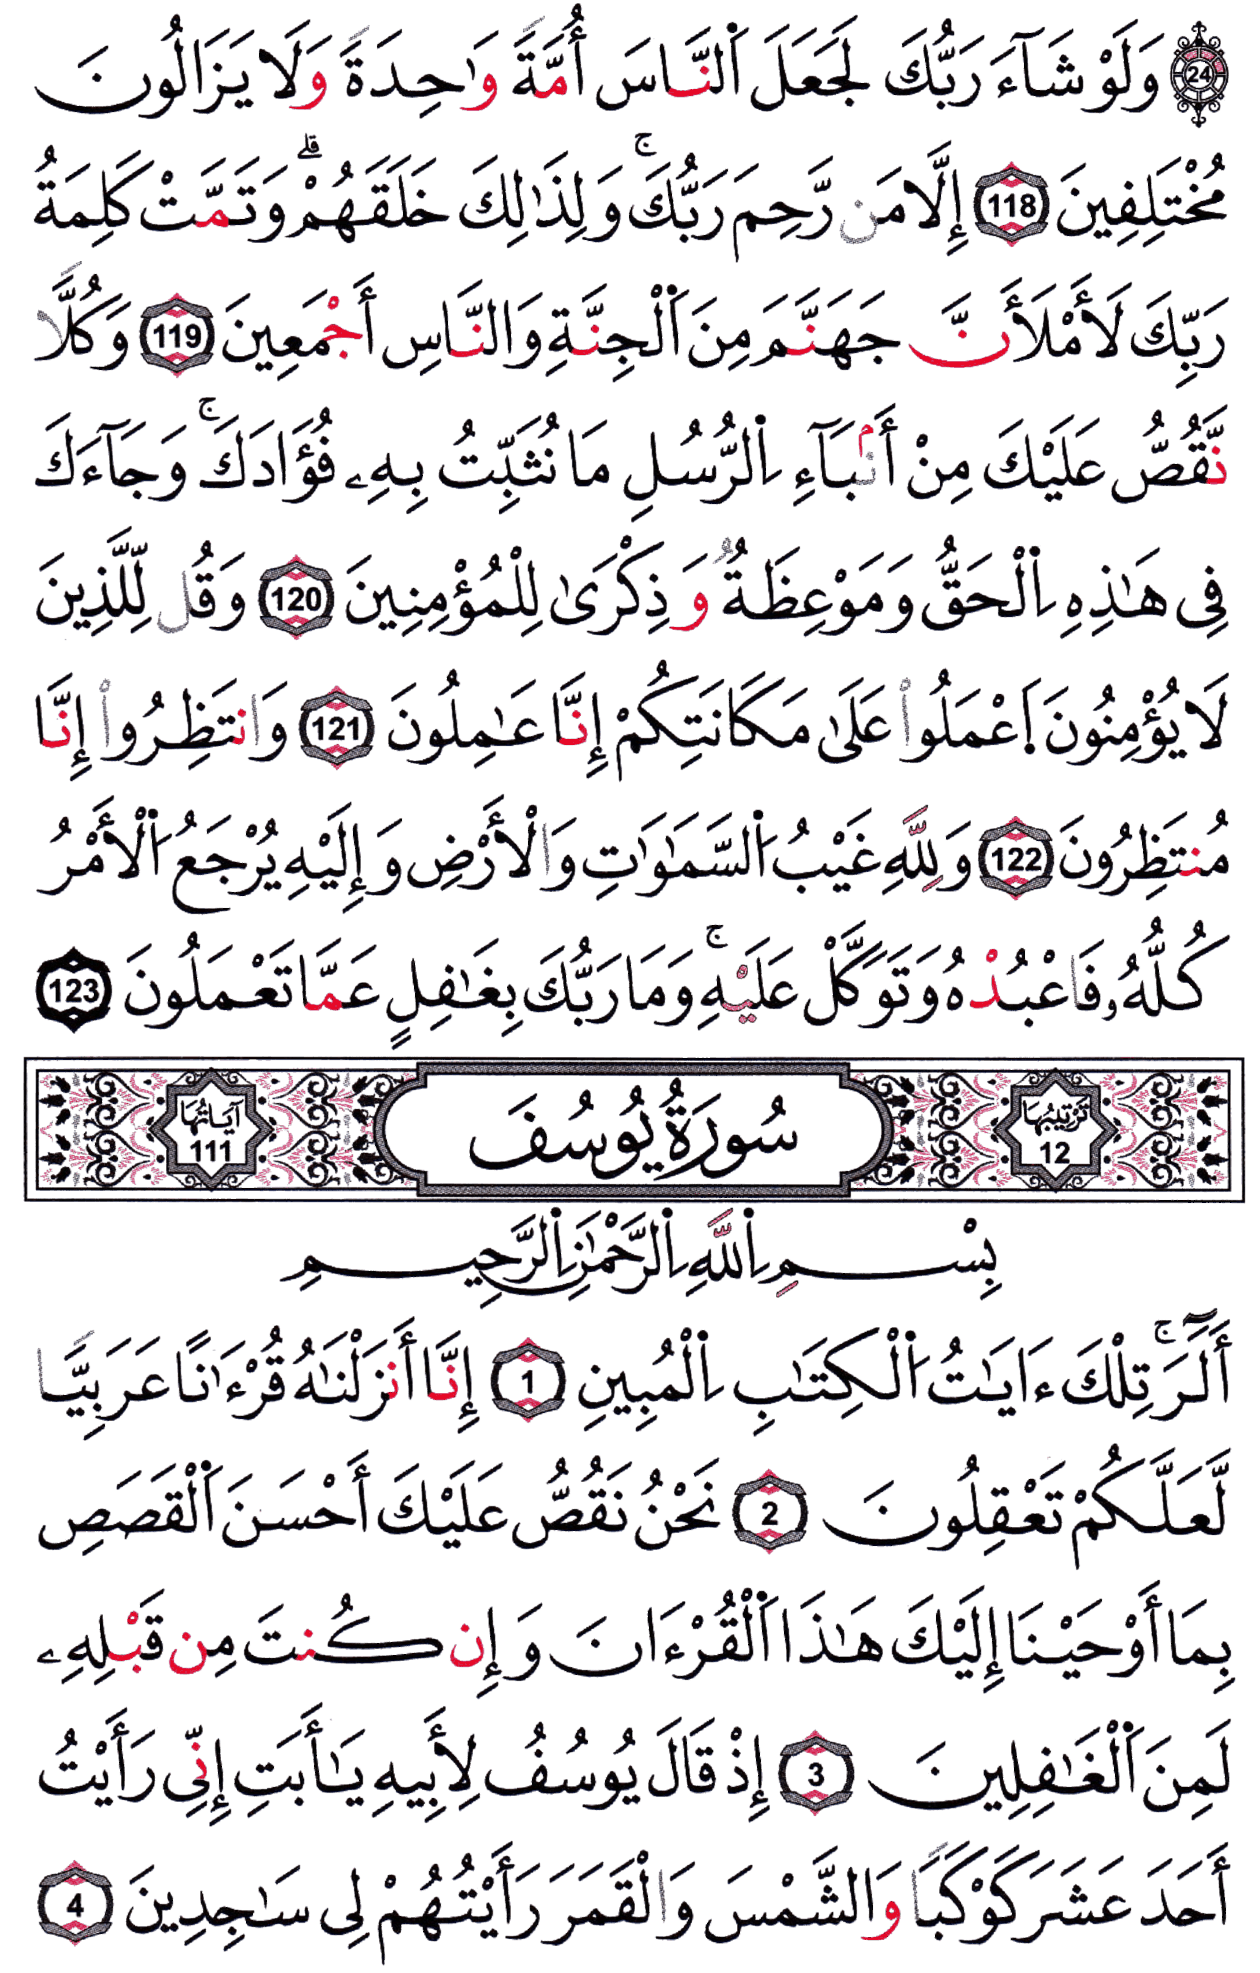 24 وَلَوْ شَآءَ رَبُّكَ لَجَعَلَ اَ۬لنَّاسَ أُمَّةٗ وَٰحِدَةٗ وَلَا يَزَالُونَ
مُخْتَلِفِينَ 118 إِلَّا مَن رَّحِمَ رَبُّكَۚ وَلِذَٰلِكَ خَلَقَهُمْۗ وَتَمَّتْ كَلِمَةُ
رَبِّكَ لَأَمْلَأَنَّ جَهَنَّمَ مِنَ اَ۬لْجِنَّةِ وَالنَّاسِ أَجْمَعِينَ 119 وَكُلّٗا
نَّقُصُّ عَلَيْكَ مِنْ أَنۢبَآءِ اِ۬لرُّسُلِ مَا نُثَبِّتُ بِهِۦ فُؤَادَكَۚ وَجَآءَكَ
فِي هَٰذِهِ اِ۬لْحَقُّ وَمَوْعِظَةٞ وَذِكْرَىٰ لِلْمُؤْمِنِينَ 120 وَقُل لِّلَّذِينَ
لَا يُؤْمِنُونَ اَ۪عْمَلُواْ عَلَىٰ مَكَانَتِكُمْ إِنَّا عَٰمِلُونَ 121 وَانتَظِرُواْ إِنَّا
مُنتَظِرُونَ 122 وَلِلَّهِ غَيْبُ اُ۬لسَّمَٰوَٰتِ وَالْأَرْضِ وَإِلَيْهِ يُرْجَعُ اُ۬لْأَمْرُ
كُلُّهُۥ فَاعْبُدْهُ وَتَوَكَّلْ عَلَيْهِۚ وَمَا رَبُّكَ بِغَٰفِلٍ عَمَّا تَعْمَلُونَ 123
تَرْتِيبُهَا 12 سُورَةُ يُوسُفَ آيَاتُهَا 111
بِسْمِ اِ۬للَّهِ اِ۬لرَّحْمَٰنِ اِ۬لرَّحِيمِ
أَلَٓرَۚ تِلْكَ ءَايَٰتُ اُ۬لْكِتَٰبِ اِ۬لْمُبِينِ 1 إِنَّا أَنزَلْنَٰهُ قُرْءَٰنًا عَرَبِيّٗا
لَّعَلَّكُمْ تَعْقِلُونَ 2 نَحْنُ نَقُصُّ عَلَيْكَ أَحْسَنَ اَ۬لْقَصَصِ
بِمَا أَوْحَيْنَا إِلَيْكَ هَٰذَا اَ۬لْقُرْءَانَ وَإِن كُنتَ مِن قَبْلِهِۦ
لَمِنَ اَ۬لْغَٰفِلِينَ 3 إِذْ قَالَ يُوسُفُ لِأَبِيهِ يَٰأَبَتِ إِنِّي رَأَيْتُ
أَحَدَ عَشَرَ كَوْكَبٗا وَالشَّمْسَ وَالْقَمَرَ رَأَيْتُهُمْ لِي سَٰجِدِينَ 4